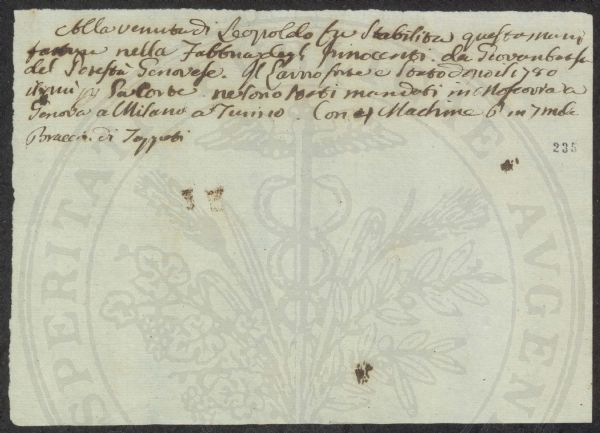 Alla venuta di Leopoldo fu Stabilita questa mani
fattura nella Fabbrica degl Innocenti da Giovanbatista
del Podestà Genovese. Il Lavro forte è Stato dono il 1780
La Corte ne sono stati mandati in Moscovia a
Genova a Milano a Turino. Con Machine 6 in 7 mila
Braccia di Tappeti
235
SPERITA
E AVGEN